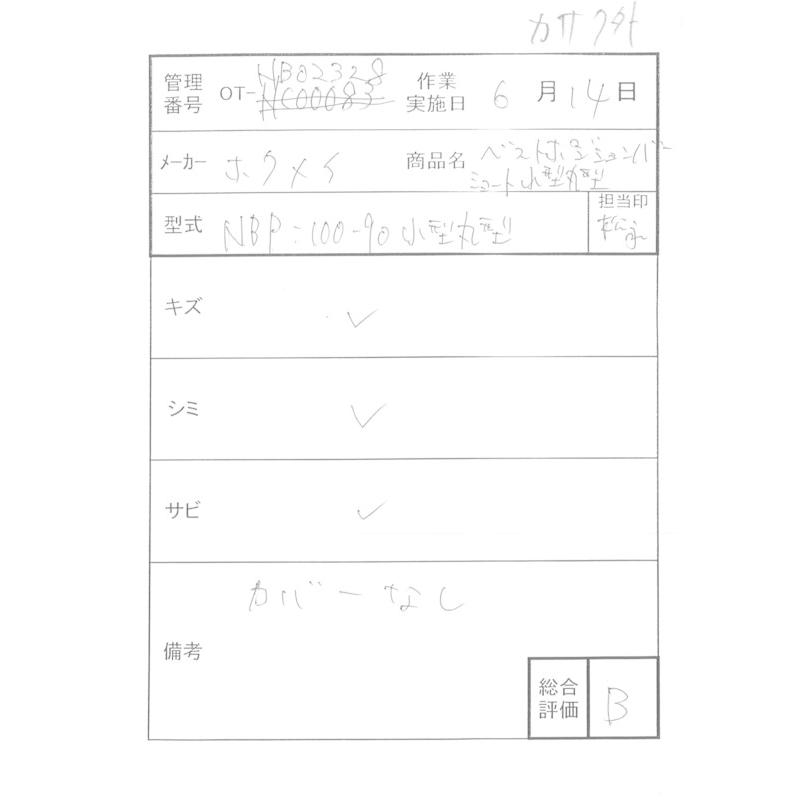 カサ外
管理番号 OT- NB02328 NC00083 作業実施日 6月14日
メーカー ホクメイ 商品名 ベストポジションバー
ショート小型丸型
型式 NBP:100-90小型丸型 担当印
キズ ✓
シミ ✓
サビ ✓
備考 カバーなし
総合評価 B